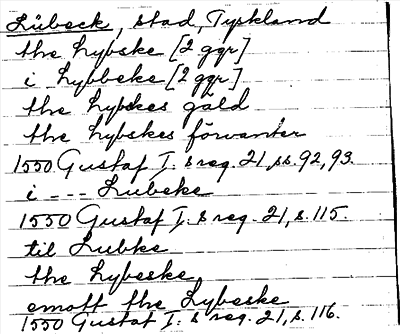 Lübeck, stad, Tyskland
the lybske [2 ggr]
i lybbeke [2 ggr]
the lybskes gäld
the lybskes förvanter
1550 Gustaf I:s reg. 21, ss. 92, 93.
i --- Lubeke
1550 Gustaf I:s reg. 21, s. 115.
til Lubke
the lybeske
emott the Lybeske
1550 Gustaf I:s reg. 21, s. 116.